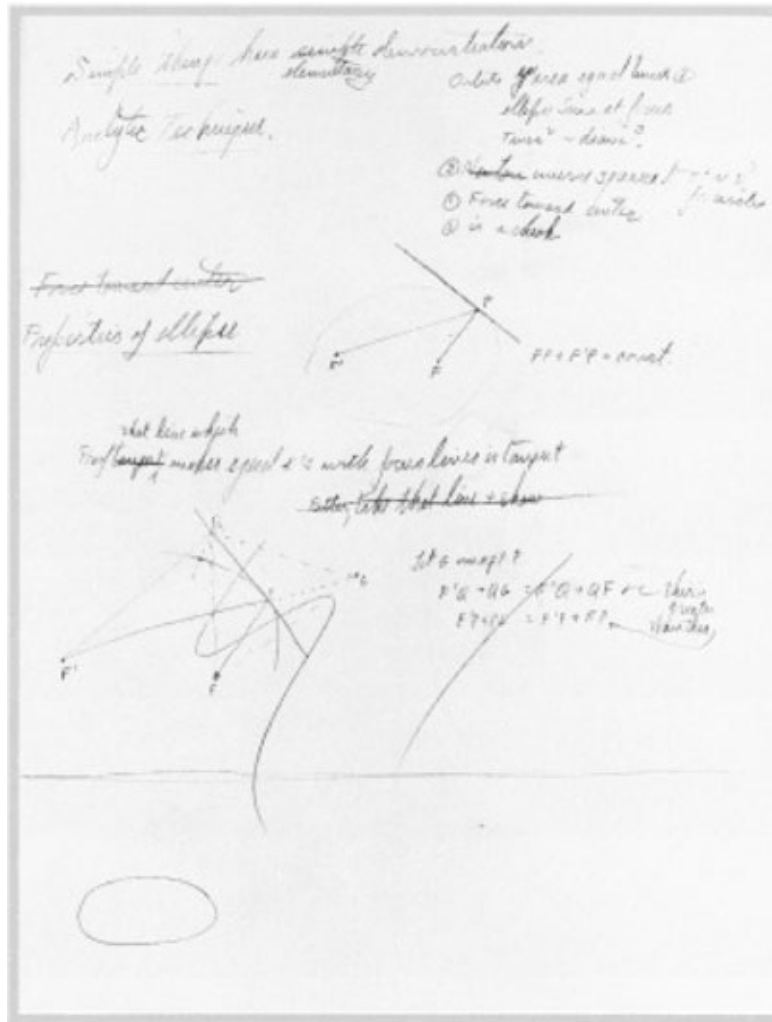 Simple things have simple demonstrations.
elementary
Analytic Techniques.
Orbits area equal times ①
ellipse Sun at focus
Times² ~ dean³.
② Newton inverse squares
for circles
① Force toward center
③ is a check
Force toward center
Properties of ellipse
P
F'
F
FP + F'P = const.
that line which
Proof tangent makes equal ∠'s with focus lines is tangent
Better, take that line + show
G
P
F'
F
Let G image F
F'Q + QG = F'Q + QF
F'P + PG = F'P + FP
this
greater
than this